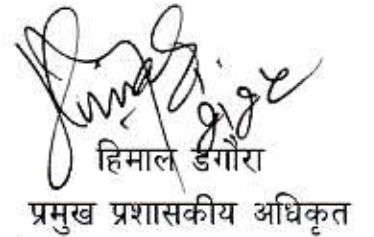 हिमाल डगौरा
प्रमुख प्रशासकीय अधिकृत